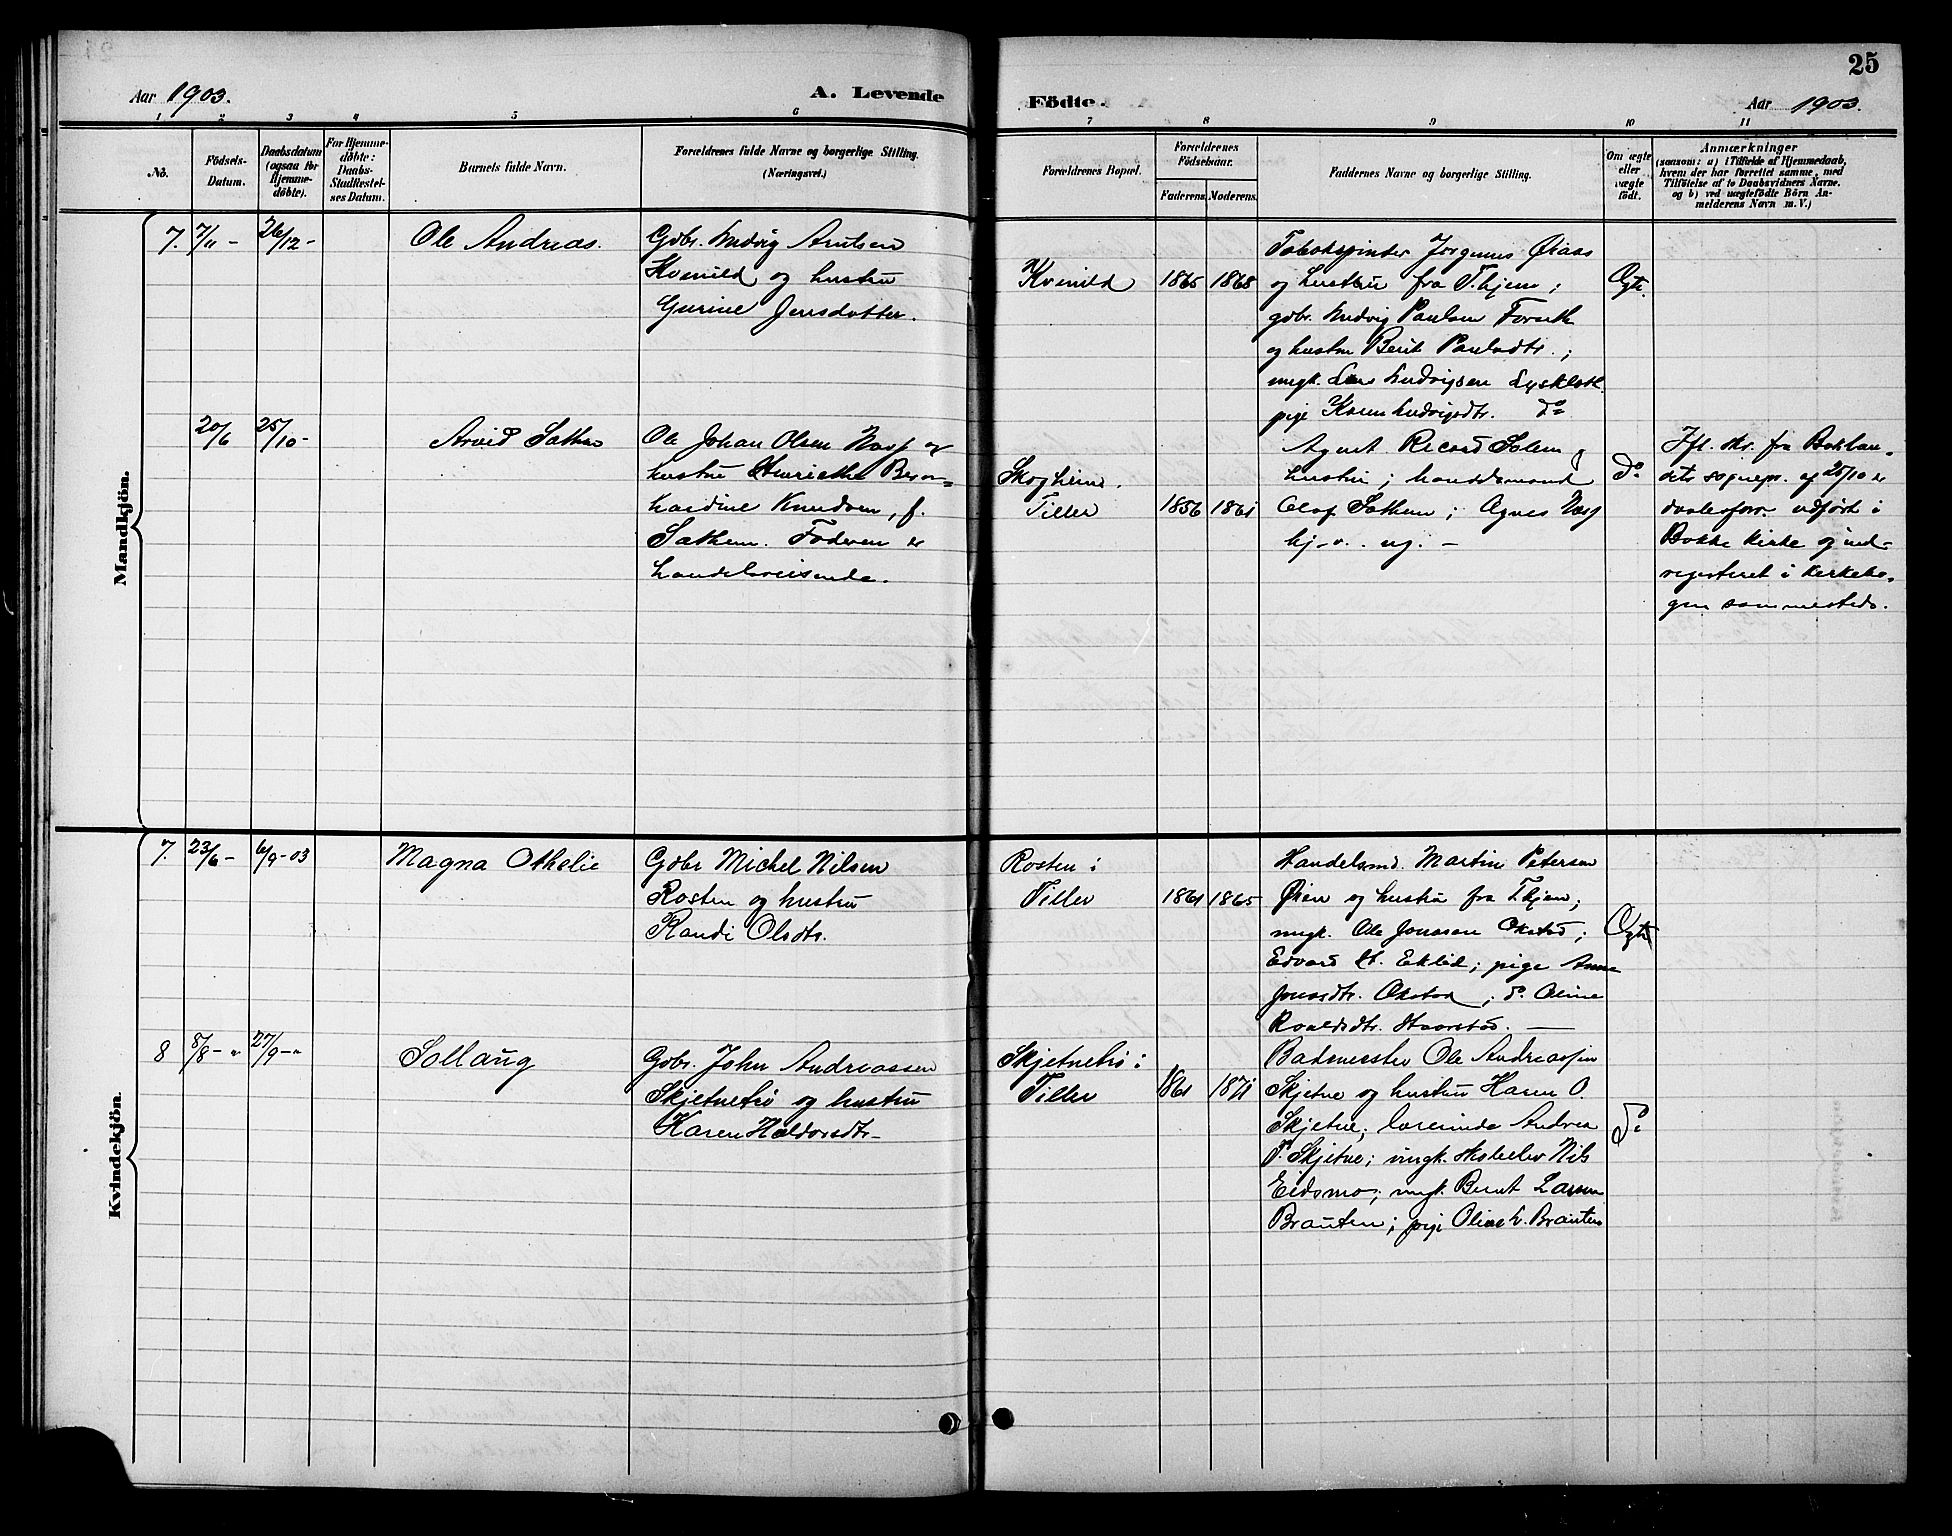 25
Aar 1903.
A. Levende
Födte.
Aar 1903.
1 2 3 4 5 6 7 8 9 10 11
No.
Födsels-
Datum.
Daabsdatum
(ogsaa for
Hjemme-
döbte).
For Hjemme-
döbte:
Daabs-
Stadfæstel-
ses Datum.
Barnets fulde Navn.
Forældrenes fulde Navne og borgerlige Stilling.
(Næringsvei.)
Forældrenes Bopæl.
Forældrenes
Födselsaar.
Faderens. Moderens.
Faddernes Navne og borgerlige Stilling.
Om ægte
eller
uægte
født.
Anmærkninger
(saasom: a) i Tilfælde af Hjemmedaab,
hvem der har forrettet samme, med
Tilföielse af to Daabsvidners Navne.
og b) ved uægtefödte Börn An-
melderens Navn m. V.)
Mandkjön.
7. 7/11 - 26/12 -
Ole Andreas.
Gdbr. Ludvig Arntsen
Kvenild og hustru
Gurine Jensdotter.
Kvenild
1865 1868
Tobakspinder Jørgenes Øiaas
og hustru fra T.hjem;
gdbr. Ludvig Paulsen Forseth
og hustru Berit Paulsdtr.;
ungk. Lars Ludvigsen Lysklæt
pige Karen Ludvigsdtr. do
Ægte.
20/6 25/10 -
Arvid Sathen
Ole Johan Olsen Næss og
hustru Henriethe Bern-
hardine Knudsen, f.
Sathen. Faderen er
handelsreisende.
Skogheim.
Tiller
1856 1861
Agent Ricard Solem og
hustru; handelsmand
Olaf Sathen; Agnes Næss
hj. v. ug. -
do
Ifl. skr. fra Bakklan-
dets sognepr. af 25/10 er
daabsforr. udført i
Bakke kirke og ind-
registeret i kirkebo-
gen sammesteds.
Kvindekjön.
7. 23/6 - 6/9 - 03
Magna Othelie
Gdbr Michel Nilsen
Rosten og hustru
Randi Olsdtr.
Rosten i
Tiller
1861 1865
Handelsmd. Martin Petersen
Øien og hustru fra T.hjem;
ungk. Ole Jonassen Okstad;
Edvard St. Eklid; pige Anne
Jonasdtr. Okstad; do. Oline
Roaldsdtr. Haarstad. -
Ægte
8 8/8 - " 27/9 - "
Sollaug
Gdbr. John Andreassen
Skjetnetrø og hustru
Karen Haldorsdtr.
Skjetnetrø i
Tiller
1861 1871
Bademester Ole Andreassen
Skjetne og hustru Karen O.
Skjetne; lærerinde Andrea
P. Skjetne; ungk. Nils
Eidsmo; ungk. Bernt Larsen
Brauten; pige Oline L. Brauten
do